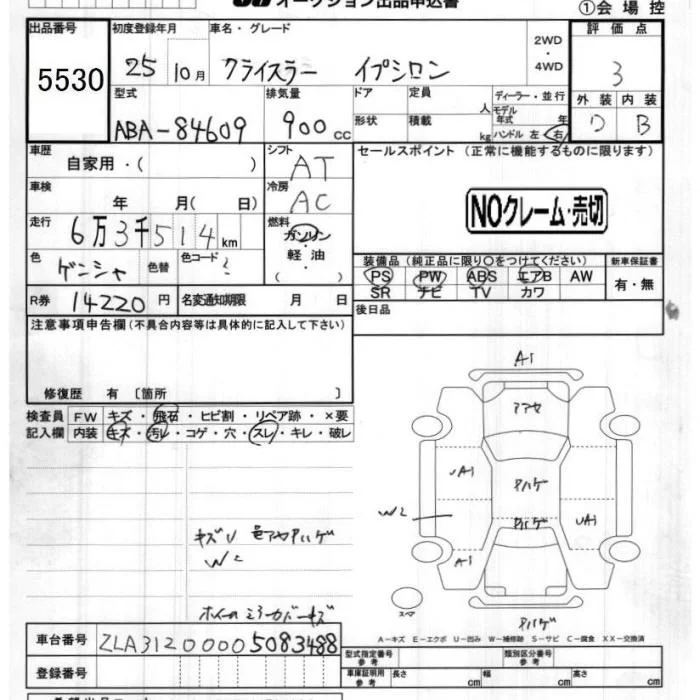 オークション出品申込書
①会場控
出品番号 初度登録年月 車名・グレード 評価点
5530 25 10月 クライスラー イプシロン 2WD・4WD 3
型式 排気量 ドア 定員 人 ディーラー・並行 外装 内装
ABA-84609 900cc 形状 積載 kg モデル年式 年 ハンドル 左 右 B
車歴 シフト セールスポイント (正常に機能するものに限ります)
自家用・( ) AT
車検 冷房
年 月( 日) AC NOクレーム・売切
走行 燃料
6万3千514km ガソリン・軽油・( )
色 色替 色コード 装備品(純正品に限り○をつけてください) 新車保証書
ゲンシャ PS PW ABS エアB AW 有・無
R券 14220円 名変通知期限 月 日 SR ナビ TV カワ
注意事項申告欄(不具合内容等は具体的に記入して下さい) 後日品
修復歴 有 〔箇所 〕
A1
検査員 FW キズ・飛石・ヒビ割・リペア跡・×要
記入欄 内装 キズ・汚レ・コゲ・穴・スレ・キレ・破レ
UA1
ハゲ
W2
UA1
キズU
W2
A1
スペア
車台番号 ZLA31200005083488
A-キズ E-エクボ U-凹み W-補修跡 S-サビ C-腐食 XX-交換済
登録番号
型式指定番号 参考 類別区分番号 参考
車庫証明用 参考 長さ cm 幅 cm 高さ cm